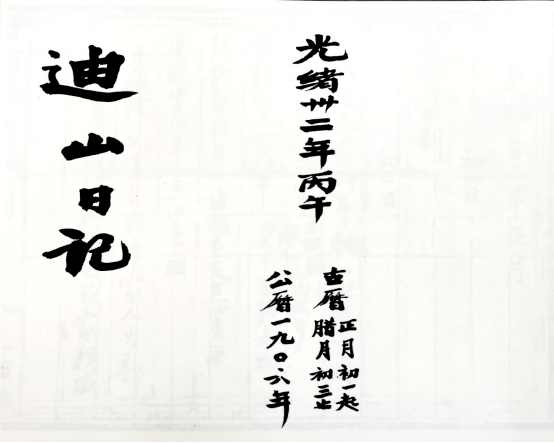 光緒卅二年丙午
古曆
正月初一起
腊月初三止
公曆一九〇六年
迪山日記